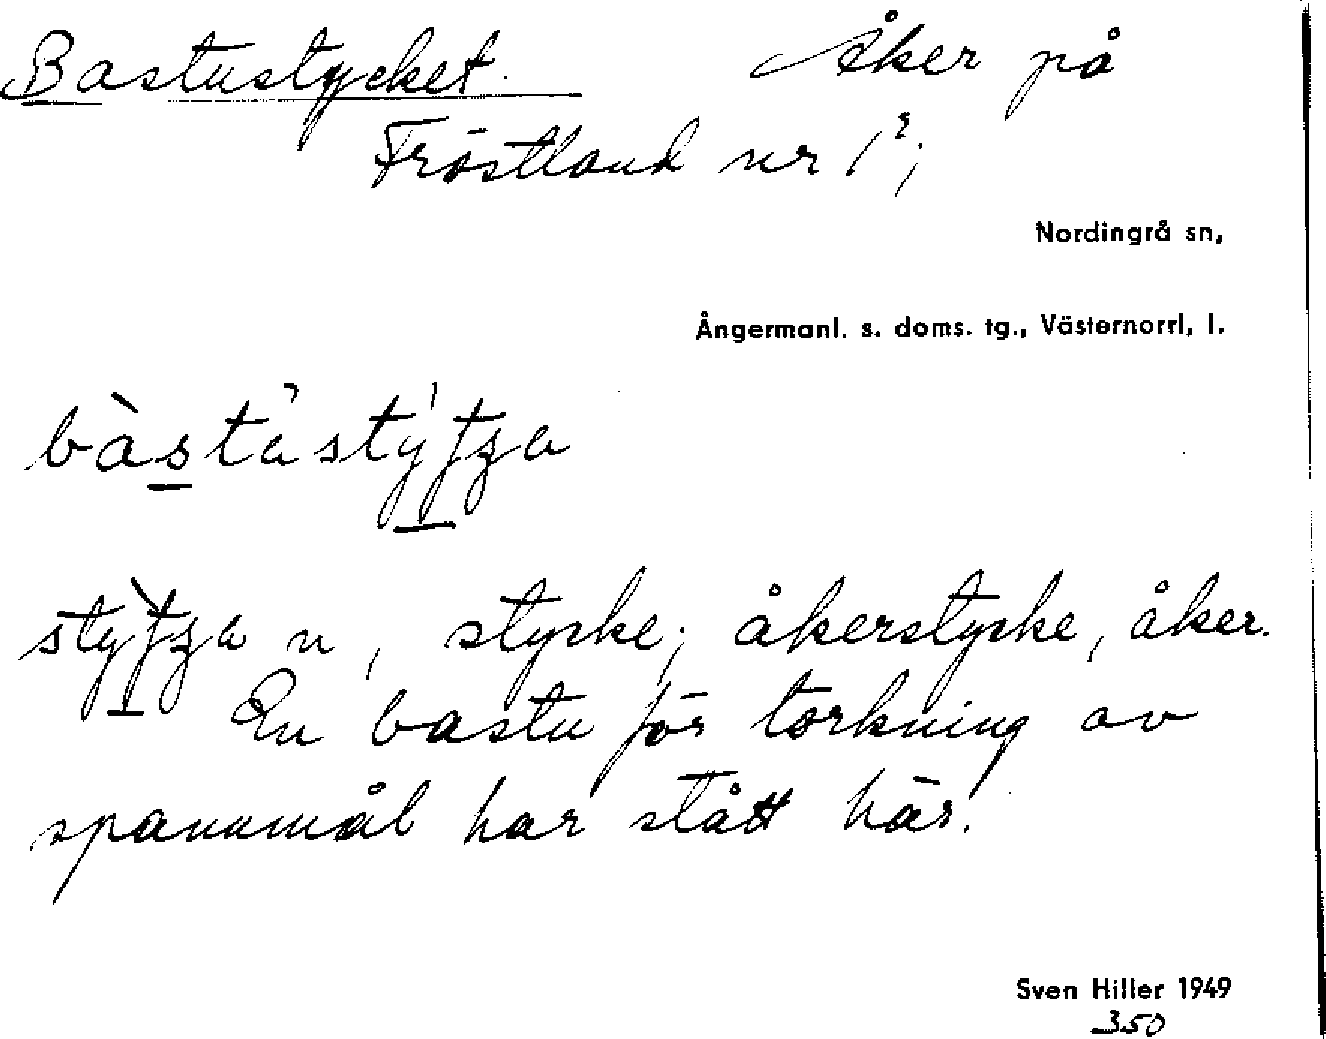 Bastustycket. Åker på
Fröstland nr 1²;
Nordingrå sn,
Ångermanl. s. doms. tg., Västernorrl. l.
stycke; åkerstycke, åker.
En bastu för torkning av
spannmål har stått här.
Sven Hiller 1949
350